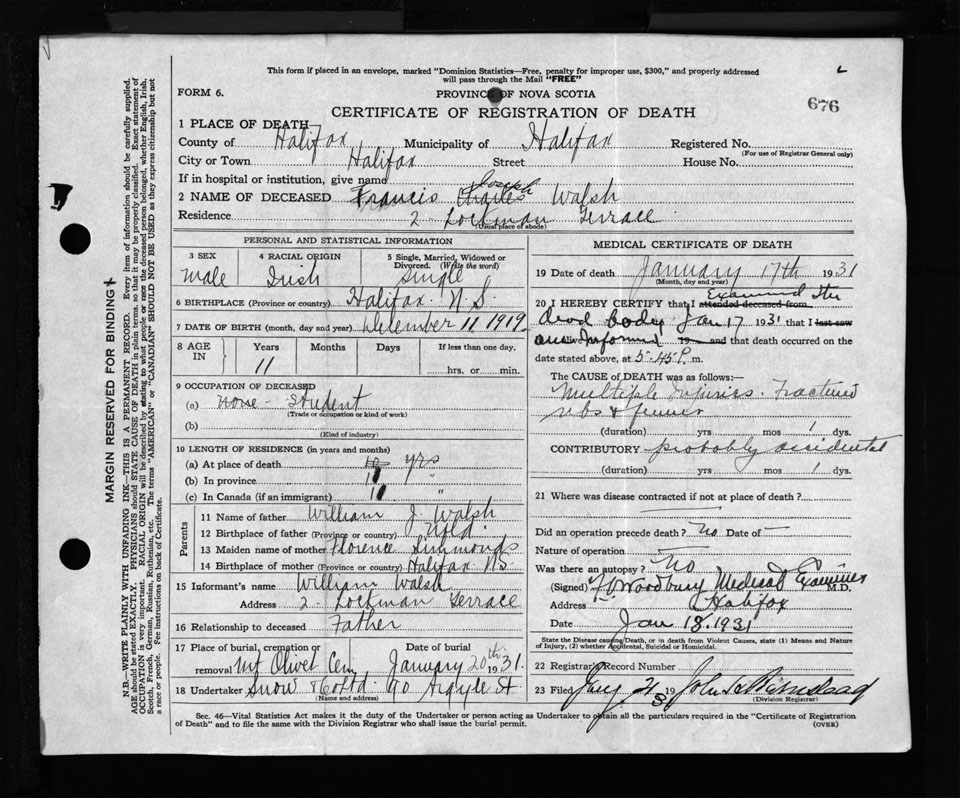 This form if placed in an envelope, marked "Dominion Statistics—Free, penalty for improper use, $300," and properly addressed
will pass through the Mail "FREE"
676
FORM 6.
PROVINCE OF NOVA SCOTIA
CERTIFICATE OF REGISTRATION OF DEATH
1 PLACE OF DEATH
County of Halifax Municipality of Halifax Registered No.
(For use of Registrar General only)
City or Town Halifax Street House No.
If in hospital or institution, give name
Joseph
2 NAME OF DECEASED Francis Charles Walsh
Residence 2 Lockman Terrace
(Usual place of abode)
PERSONAL AND STATISTICAL INFORMATION
3 SEX 4 RACIAL ORIGIN 5 Single, Married, Widowed or
Divorced. (Write the word)
Male Irish Single
6 BIRTHPLACE (Province or country) Halifax N.S.
7 DATE OF BIRTH (month, day and year) December 11 1919
8 AGE IN Years Months Days If less than one day,
11 hrs. or min.
9 OCCUPATION OF DECEASED
(a) None - Student
(Trade or occupation or kind of work)
(b)
(Kind of industry)
10 LENGTH OF RESIDENCE (in years and months)
(a) At place of death yrs
(b) In province 11 "
(c) In Canada (if an immigrant) 11 "
Parents
11 Name of father William J. Walsh
12 Birthplace of father (Province or country) Nfld.
13 Maiden name of mother Florence Simmonds
14 Birthplace of mother (Province or country) Halifax N.S.
15 Informant's name William Walsh
Address 2 Lockman Terrace
16 Relationship to deceased Father
17 Place of burial, cremation or Date of burial
removal Mt Olivet Cem January 20th 1931.
18 Undertaker Snow & Co Ltd. 90 Argyle St
(Name and address)
MEDICAL CERTIFICATE OF DEATH
19 Date of death January 17th 1931
(Month, day and year)
Examined the
20 I HEREBY CERTIFY that I attended deceased from
dead body Jan 17 1931 that I last saw
am Informed 19 and that death occurred on the
date stated above, at 5.45 P. m.
The CAUSE of DEATH was as follows:—
Multiple Injuries. Fractured
ribs & femur
(duration) yrs mos 1 dys.
CONTRIBUTORY probably accidental
(duration) yrs mos 1 dys.
21 Where was disease contracted if not at place of death?
Did an operation precede death? No Date of —
Nature of operation
Was there an autopsy? No
(Signed) Woodbury Medical Examiner M.D.
Address Halifax
Date Jan 18. 1931
State the Disease causing Death, or in death from Violent Causes, state (1) Means and Nature
of Injury, (2) whether Accidental, Suicidal or Homicidal.
22 Registrar's Record Number
23 Filed 21 19
(Division Registrar)
Sec. 46—Vital Statistics Act makes it the duty of the Undertaker or person acting as Undertaker to obtain all the particulars required in the "Certificate of Registration
of Death" and to file the same with the Division Registrar who shall issue the burial permit. (OVER)
MARGIN RESERVED FOR BINDING
N.B.—WRITE PLAINLY WITH UNFADING INK—THIS IS A PERMANENT RECORD. Every item of information should be carefully supplied.
AGE should be stated EXACTLY. PHYSICIANS should STATE CAUSE OF DEATH in plain terms, so that it may be properly classified. Exact statement of
OCCUPATION is very important. RACIAL ORIGIN will be described by stating to what people or race the deceased person belonged, whether English, Irish,
Scotch, French, German, Russian, Ruthenian, etc. The terms "AMERICAN" or "CANADIAN" SHOULD NOT BE USED as they express citizenship but not
a race or people. Fee instructions on back of Certificate.